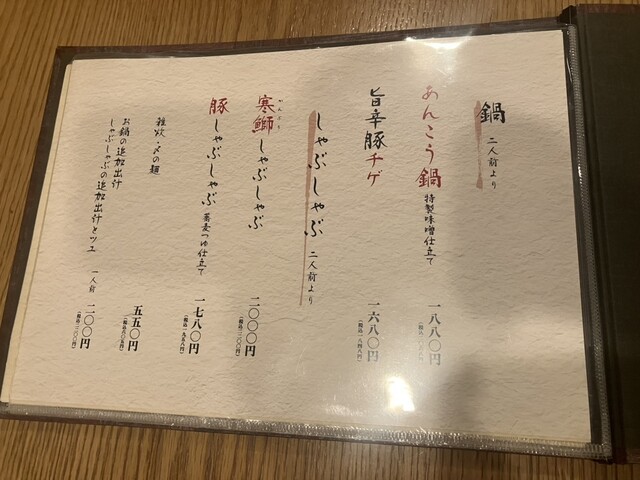 鍋 二人前より
あんこう鍋 特製味噌仕立て 一八八〇円
旨辛豚チゲ 一六八〇円
(税込一八四八円)
しゃぶしゃぶ 二人前より
かんぶり
寒鰤しゃぶしゃぶ 二〇〇〇円
(税込二二〇〇円)
豚しゃぶしゃぶ 蕎麦つゆ仕立て 一七八〇円
(税込一九五八円)
雑炊・〆の麺 五五〇円
(税込六〇五円)
お鍋の追加出汁
しゃぶしゃぶの追加出汁とツユ 一人前 二〇〇円
(税込二二〇円)